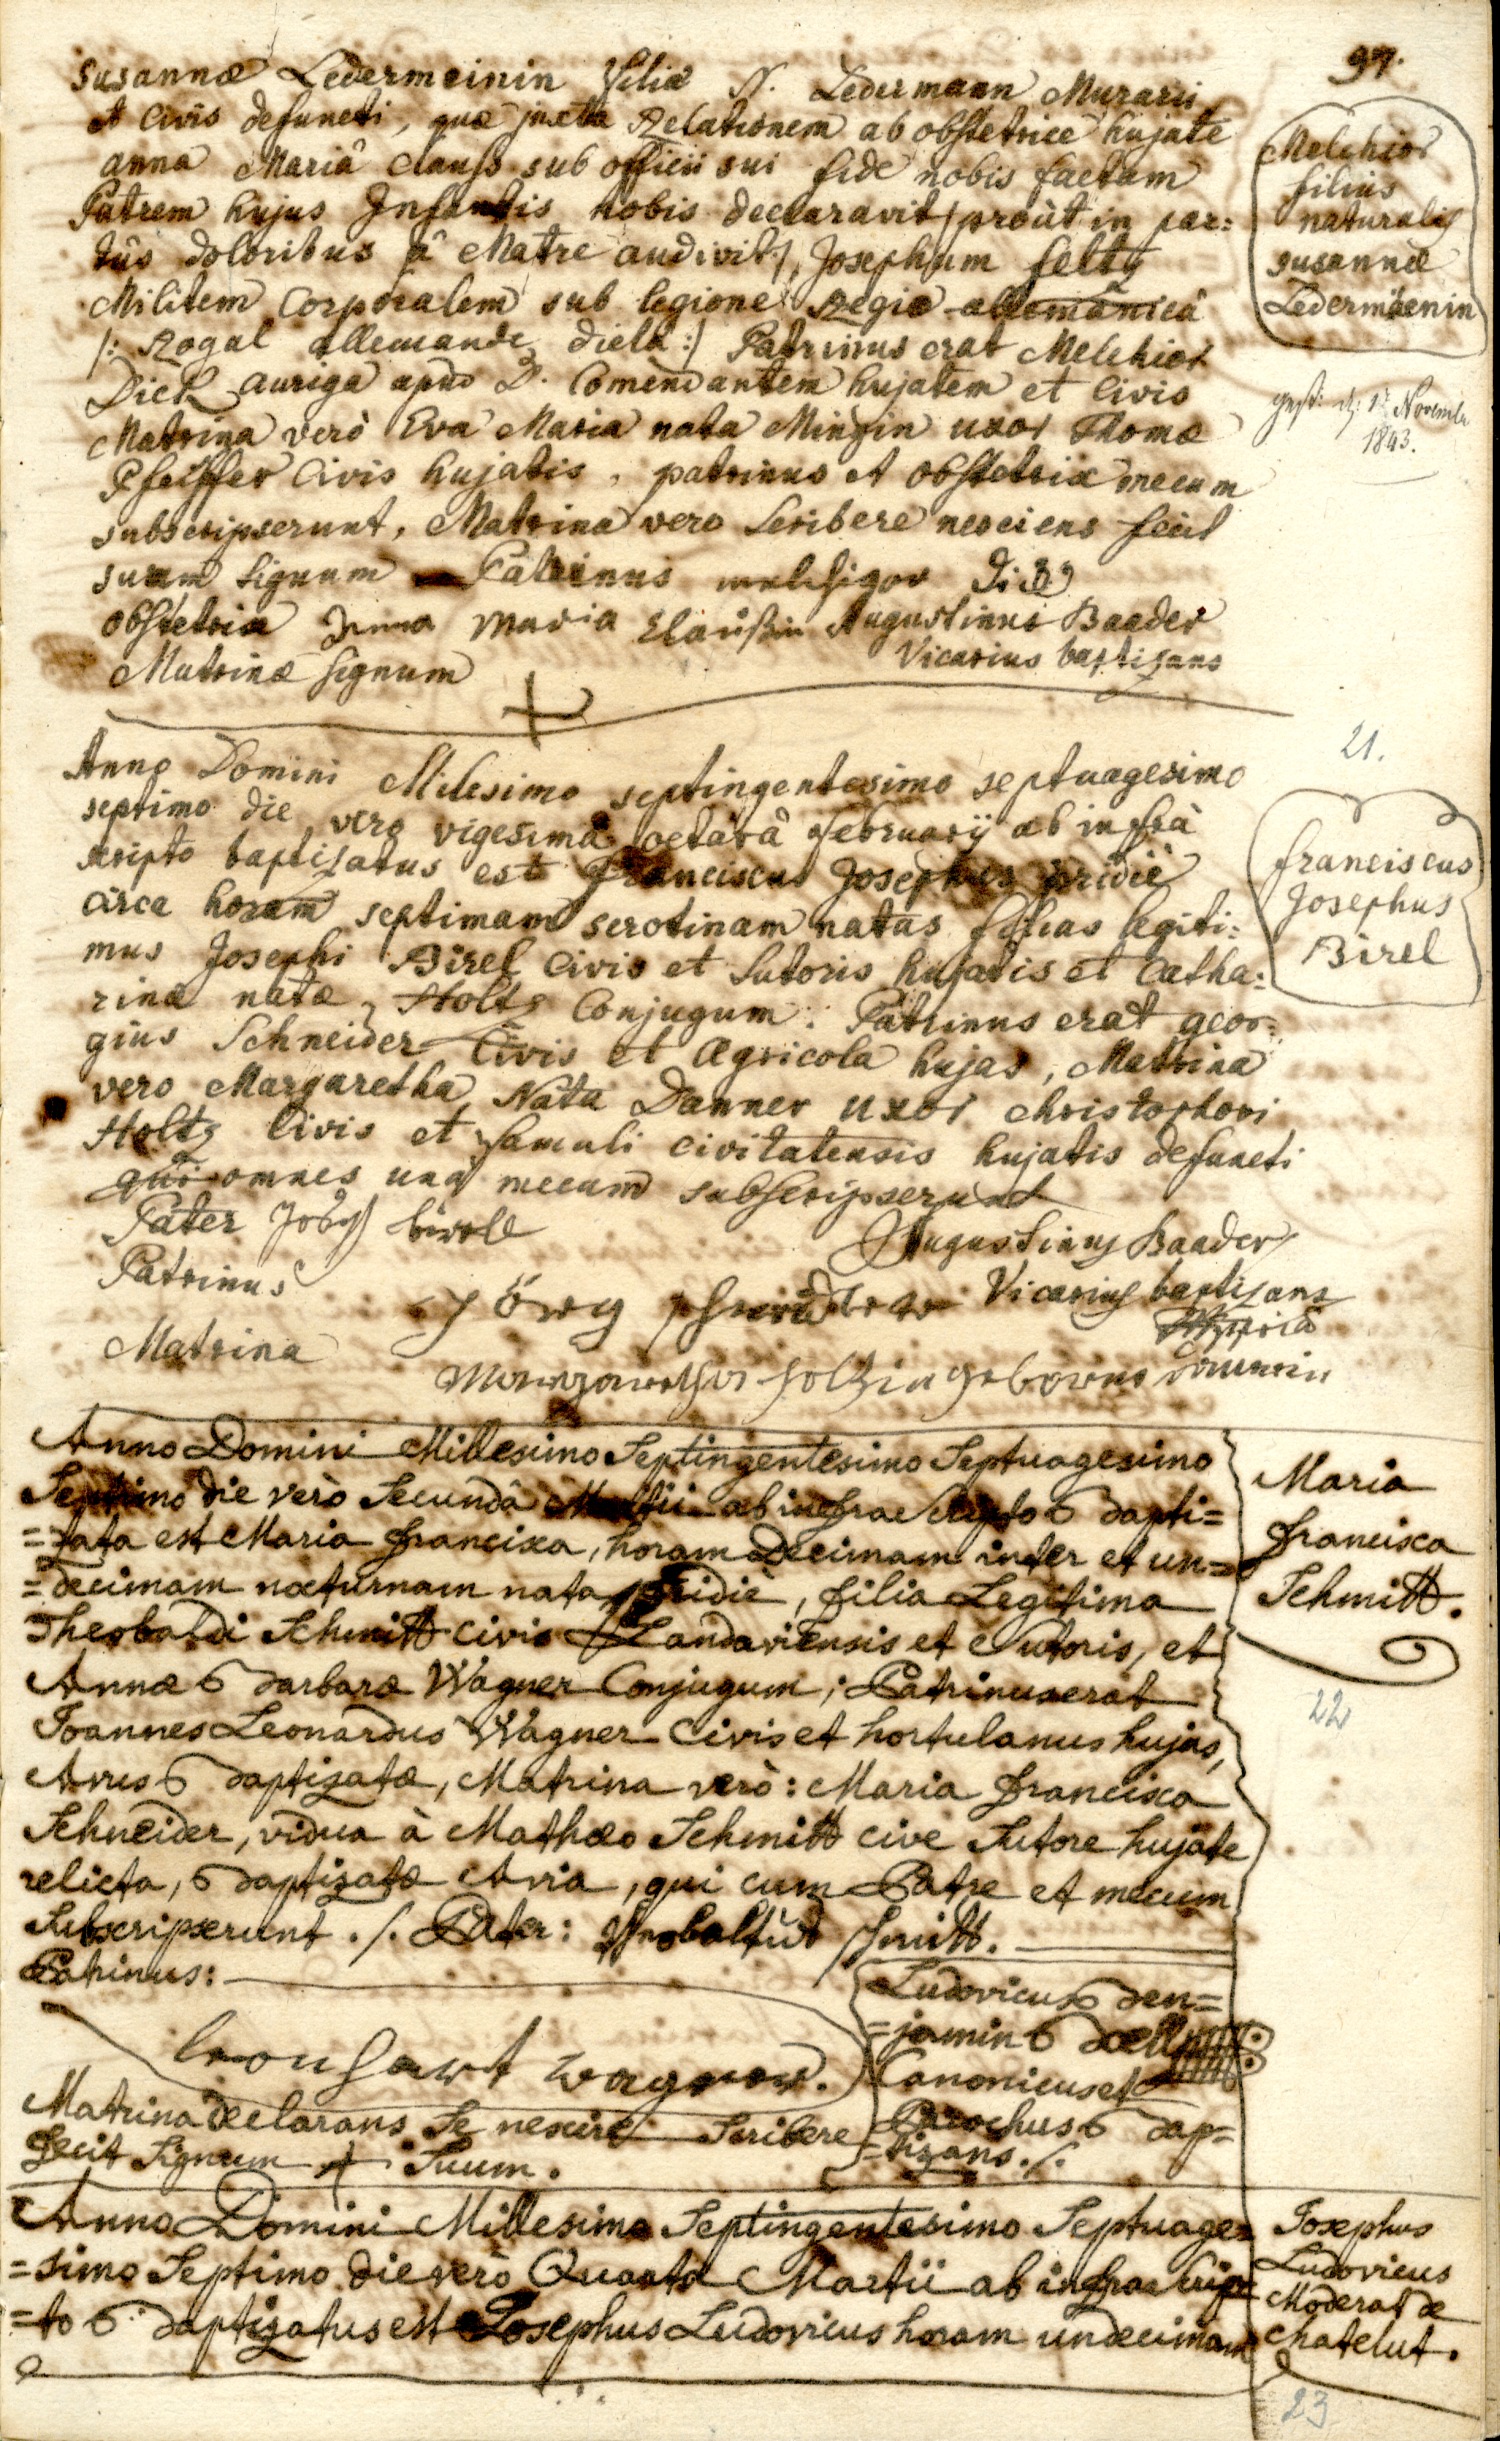 97.
Susannæ Ledermeinin filiæ N. Ledermann Murarii
et Civis defuncti, quæ juxta Relationem ab obstetrice hujate
anna Mariâ Clauss sub officii sui fide nobis factam
Patrem hujus Infantis nobis declaravit / proùt in par=
tûs doloribus â Matre audivit /, Josephum felty
Militem Corporalem sub legione Regiâ allemanicâ
/: Rogal allemande dicta :/ Patrinus erat Melchior
Dick auriga apud D. Comendantem hujatem et Civis
Matrina verò Eva Maria nata Mingin uxor Thomæ
Pfeiffer Civis hujatis, patrinus et obstetrix mecum
subscripserunt, Matrina vero scribere nesciens fecit
suum signum Patrinus melchior Dick
obstetrix Anna Maria Claußin Augustinus Baader
Vicarius baptisans
Matrinæ signum
Melchior
filius
naturalis
susannæ
Ledermænin
gest: d: 1t Novemb
1843.
21.
Anno Domini Milesimo septingentesimo septuagesimo
septimo die vero vigesimâ octavâ februarÿ ab infrà
scripto baptisatus est Franciscus Josephus pridiè
circa horam septimam serotinam natus filius legiti=
mus Josephi Birel Civis et Sutoris hujatis et Catha=
rinæ natæ Holtz Conjugum. Patrinus erat geor=
gius Schneider Civis et Agricola hujas, Matrina
vero Margaretha Nata Danner uxor Christophori
Holtz Civis et famuli civitatensis hujatis defuncti
qui omnes unà mecum subscripserunt
Pater Jobst birell
Augustinus Baader
Patrinus Jörg schneider Vicarius baptisans
Matrina Margaretha holtzin geborne Dannerin
franciscus
Josephus
Birel
Anno Domini Millesimo Septingentesimo Septuagesimo
Septimo die verò Secundâ Martii ab infra Scripto Bapti=
=zata est Maria Francisca, horam Decimam inter et un=
=decimam nocturnam nata pridiè, filia Legitima
Theobaldi Schmitt civis Landaviensis et Sutoris, et
Annæ Barbaræ Wagner Conjugum; Patrinus erat
Joannes Leonardus Wagner Civis et hortulanus hujas,
Avus Baptizatæ, Matrina verò: Maria Francisca
Schneider, vidua à Mathæo Schmitt cive Sutore hujate
relicta, Baptizatæ Avia, qui cum Patre et mecum
Subscripserunt ./. Pater: Theobaltus Smitt.
Patrinus:
leonhart wagner.
Matrina declarans Se nescire Scribere
fecit Signum + Suum.
Ludovicus Ben=
=jamin Boell
Canonicus et
Parochus Bap=
=tizans ./.
Maria
Francisca
Schmitt.
22
Anno Domini Millesimo Septingentesimo Septuage=
=simo Septimo die verò Quarta Martii ab infra Scrip=
=to Baptizatus est Josephus Ludovicus horam undecimam
Josephus
Ludovicus
Moderat de
Chatelut.
23